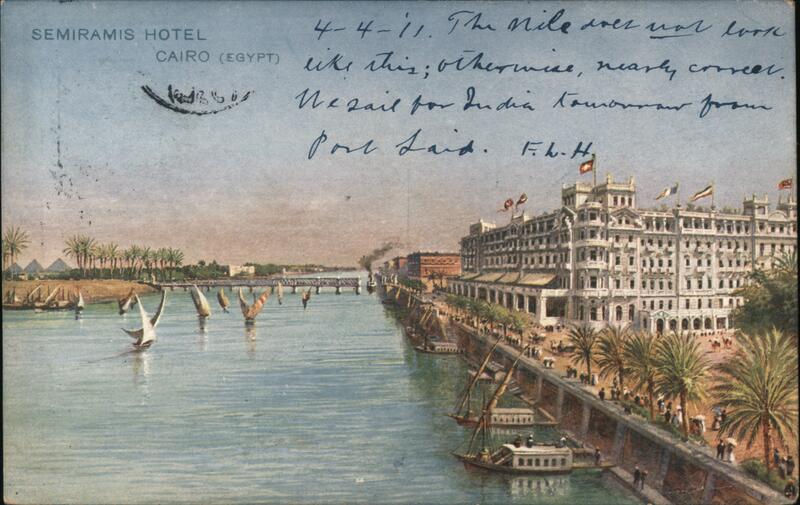 SEMIRAMIS HOTEL
CAIRO (EGYPT)
4-4-'11. The Nile does not look
like this; otherwise, nearly correct.
We sail for India tomorrow from
Port Said. F.L.H.